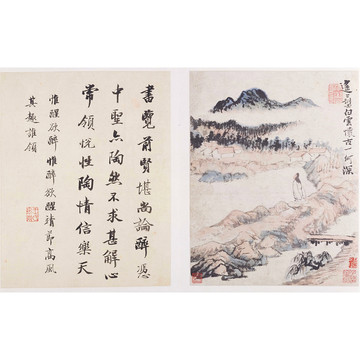 遙〻望白雲懷古一何深
書覽前賢堪尚論醉憑
中聖亦陶然不求甚解心
常領悅性陶情信樂天
惟醒欲醉惟醉欲醒靖節高風
其趣誰領